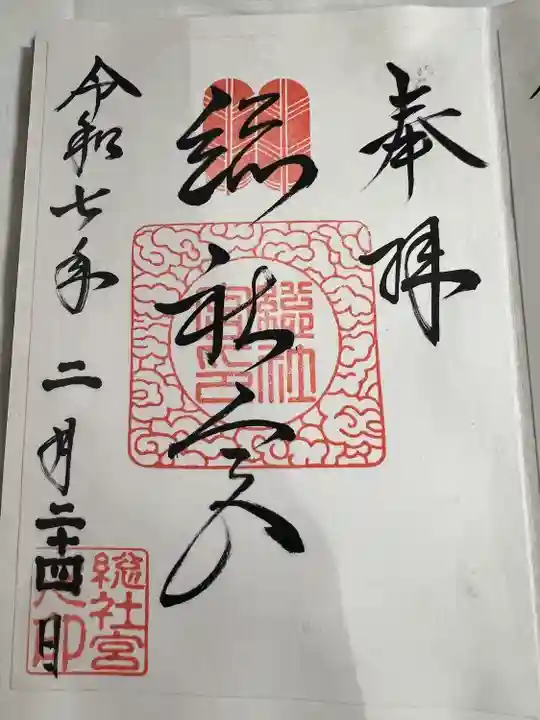 奉拝
総社宮
総社宮印
令和七年二月二十四日
総社宮
印